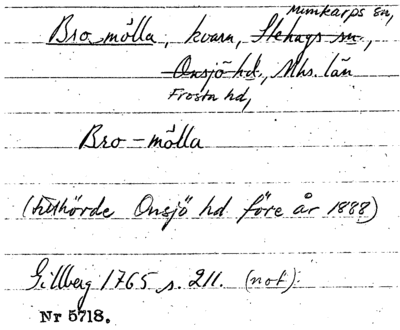 Munkarps sn,
Bro mölla, kvarn, Stehags sn.,
Onsjö hd., Mhs. län
Frosta hd,
Bro-mölla
(tillhörde Onsjö hd före år 1888)
Gillberg 1765 s. 211. (not).
Nr 5718.